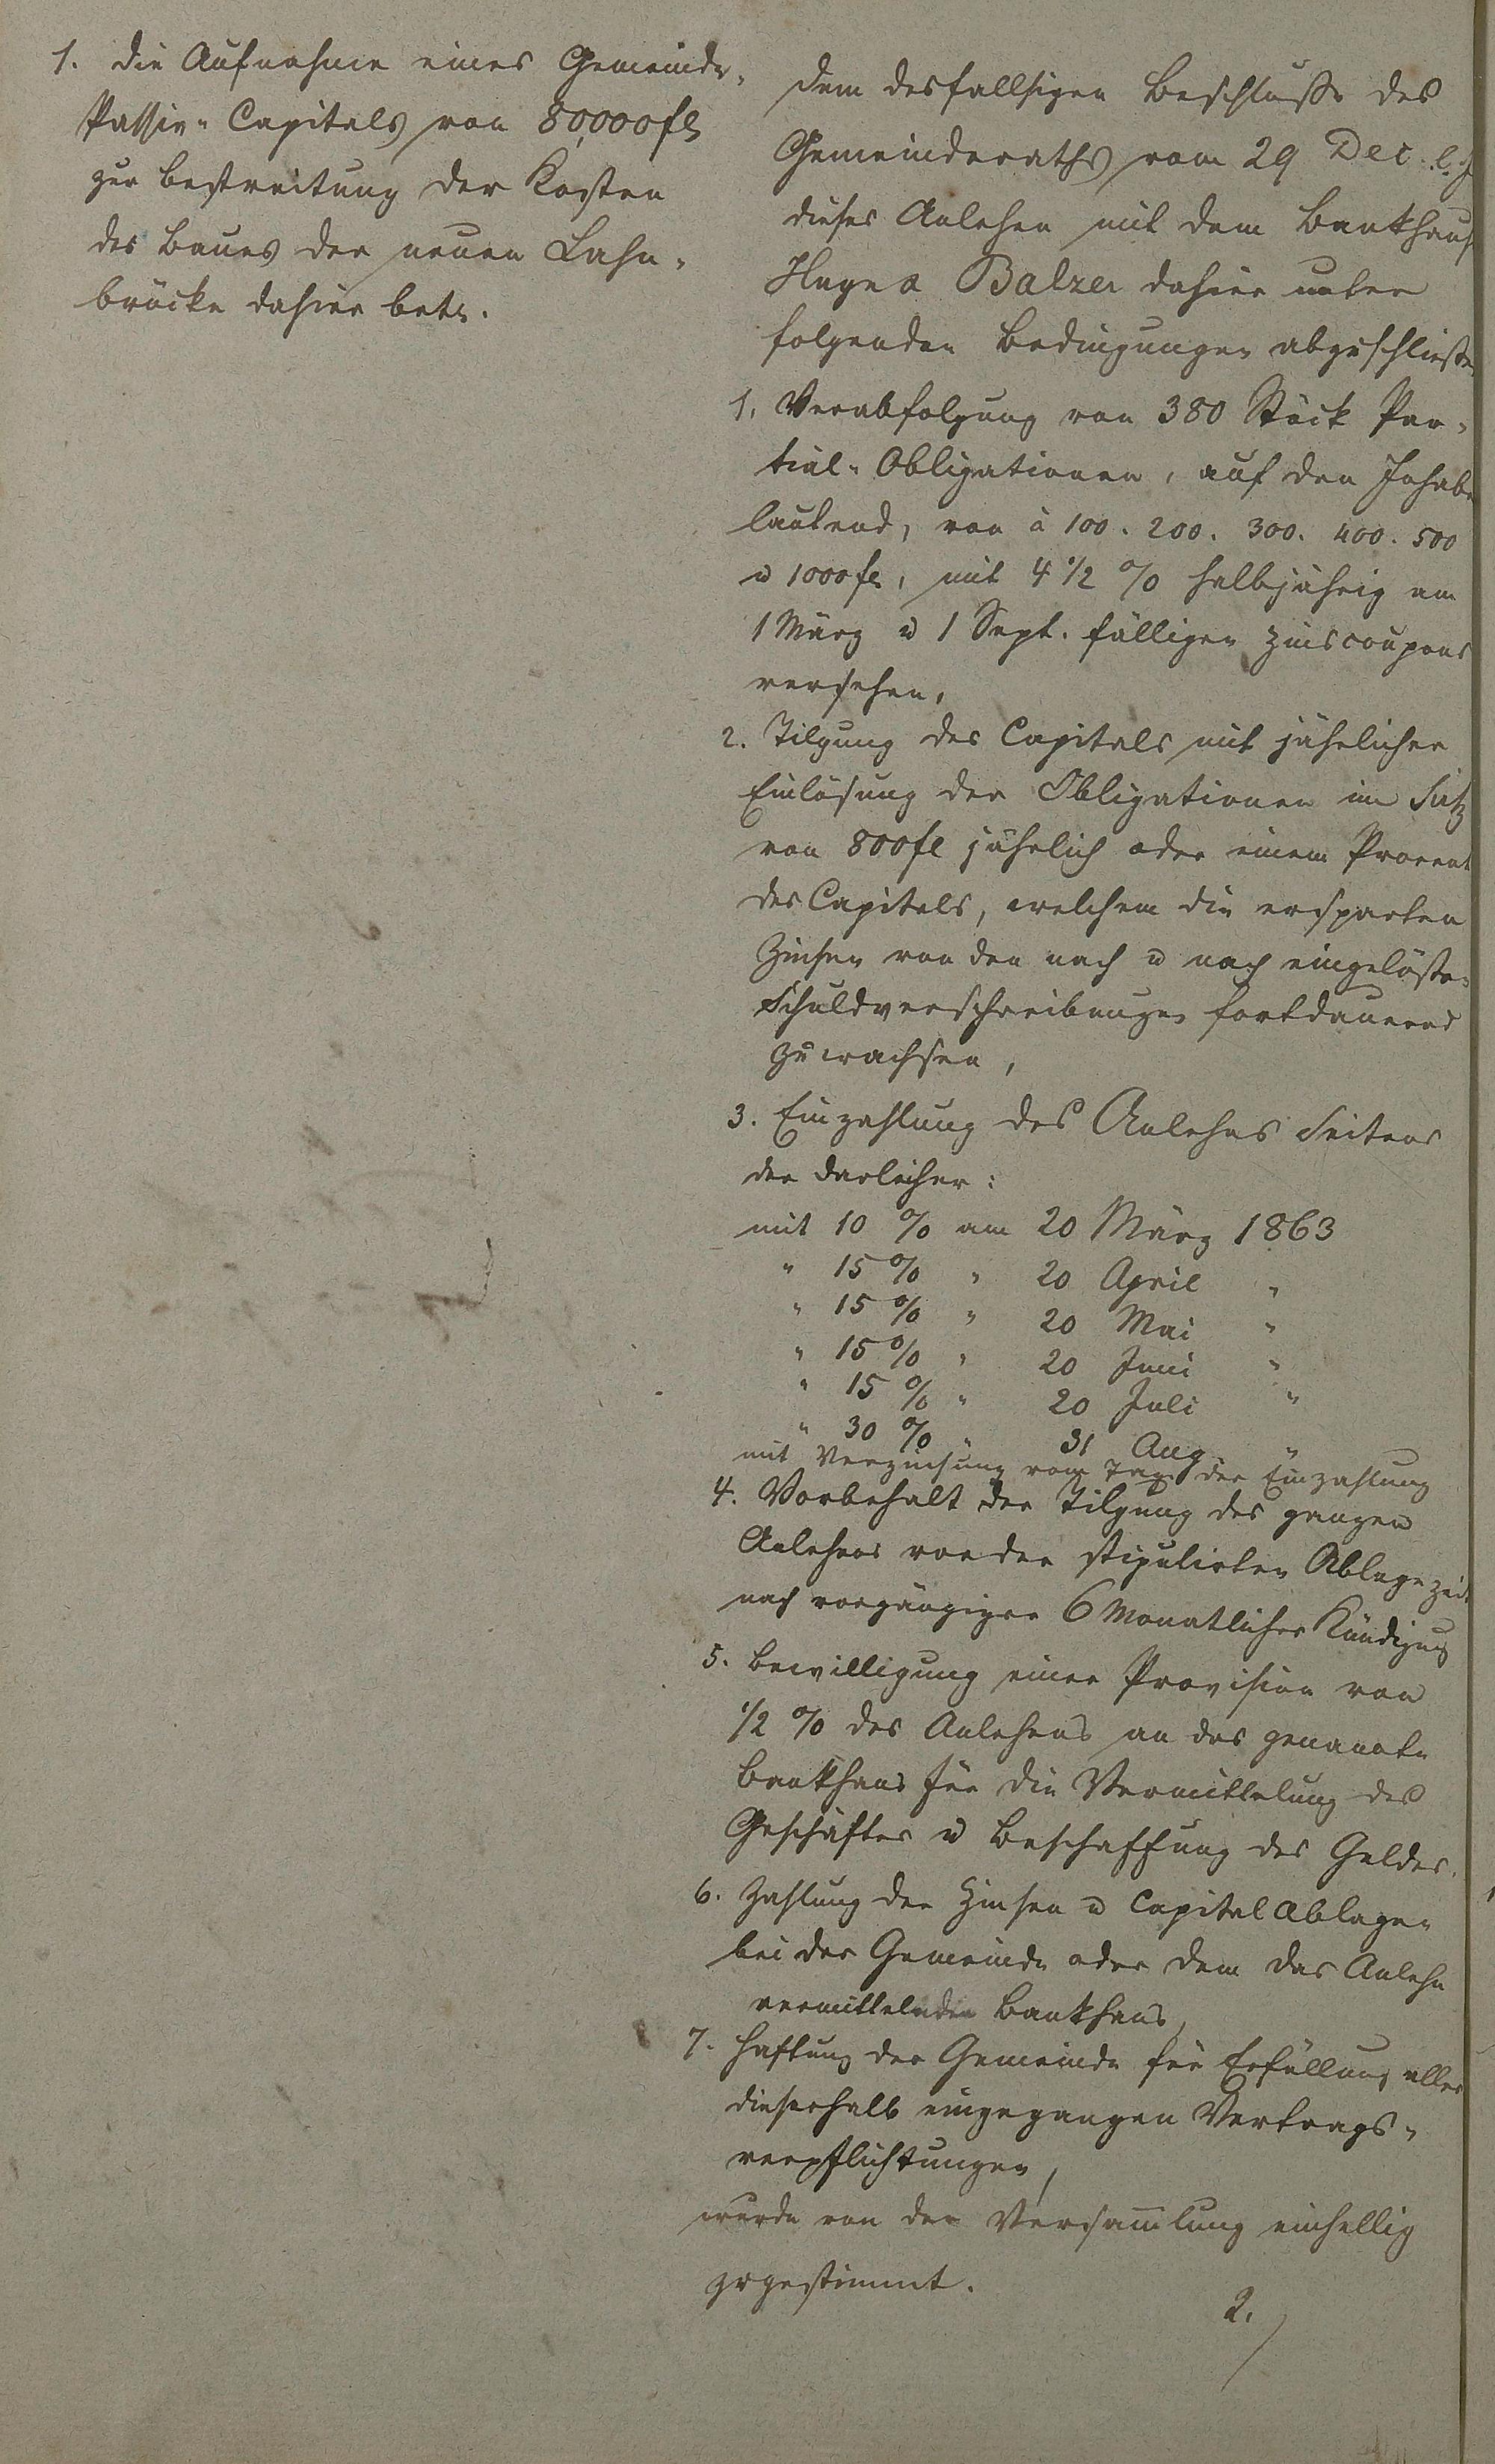 1. die Aufnahme eines Gemeinde-
Passiv-Capitals von 80,000 fl
zur Bestreitung der Kosten
des Baues der neuen Lahn-
brücke dahier betr.
dem desfallsigen Beschlusse des
Gemeinderaths vom 29 Dec. l. J
dieses Anlehen mit dem Bankhaus
Balzer dahier unter
folgenden Bedingungen abzuschließen
1. Verabfolgung von 380 Stück Par-
tial-Obligationen, auf den Inhaber
lautend, von à 100. 200. 300. 400. 500
u 1000 fl, mit 4 1/2 % halbjährig am
1 März u 1 Sept. fälligen Zinscoupons
versehen,
2. Tilgung des Capitals mit jährlicher
Einlösung der Obligationen im Satz
von 800 fl jährlich oder einem Procent
des Capitals, welchem die ersparten
Zinsen von den nach u nach eingelösten
Schuldverschreibungen fortdauernd
zuwachsen,
3. Einzahlung des Anlehns Seitens
der Darleiher:
mit 10 % am 20 März 1863
" 15 % " 20 April "
" 15 % " 20 Mai "
" 15 % " 20 Juni "
" 15 % " 20 Juli "
" 30 % " 31 Aug. "
mit Verzinsung vom Tage der Einzahlung
4. Vorbehalt der Tilgung des ganzen
Anlehens vor der stipulirten Ablagezeit
nach vorgängiger 6 Monatlicher Kündigung
5. Bewilligung einer Provision von
1/2 % des Anlehens an das genannte
Bankhaus für die Vermittelung des
Geschäftes u Beschaffung des Geldes.
6. Zahlung der Zinsen u Capital Ablagen
bei der Gemeinde oder dem das Anlehn
vermittelnden Bankhaus,
7. Haftung der Gemeinde für Erfüllung aller
dieserhalb eingegangen Vertrags-
verpflichtungen,
wurde von der Versam̅lung einhellig
zugestimmt.
2.